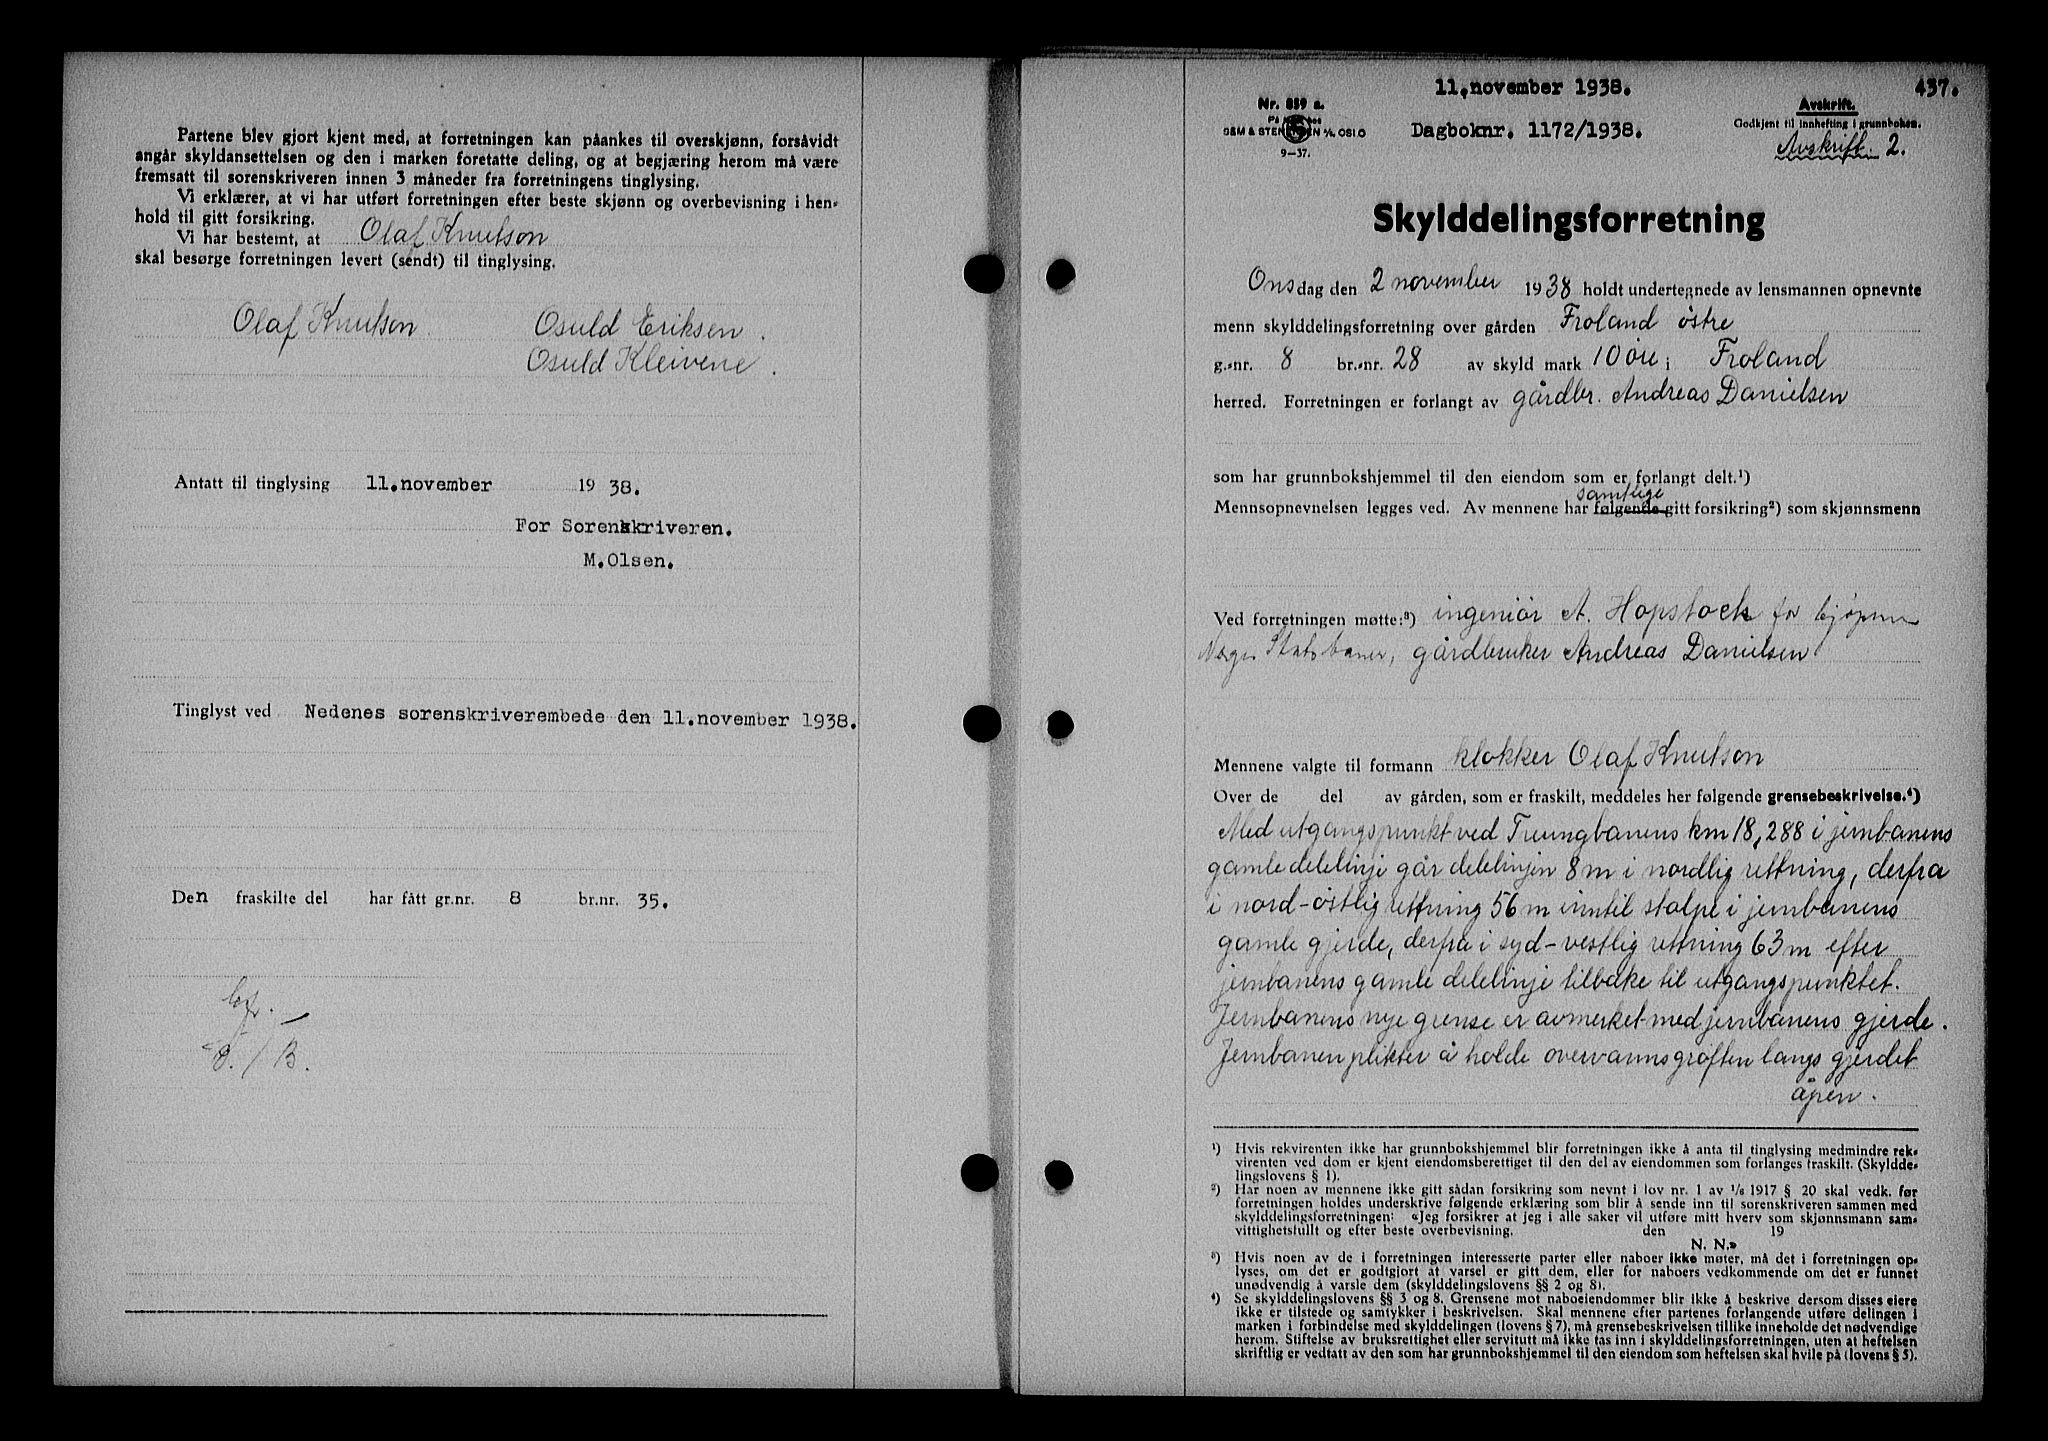 Partene blev gjort kjent med, at forretningen kan påankes til overskjønn, forsåvidt
angår skyldansettelsen og den i marken foretatte deling, og at begjæring herom må være
fremsatt til sorenskriveren innen 3 måneder fra forretningens tinglysing.
Vi erklærer, at vi har utført forretningen efter beste skjønn og overbevisning i hen-
hold til gitt forsikring.
Vi har bestemt, at Olaf Knutson
skal besørge forretningen levert (sendt) til tinglysing.
Olaf Knutson. Osuld Eriksen.
Osuld Kleivene.
Antatt til tinglysing 11.november 19 38.
For Sorenskriveren.
M.Olsen.
Tinglyst ved Nedenes sorenskriverembede den 11.november 1938.
Den fraskilte del har fått gr.nr. 8 br.nr. 35.
437.
11.november 1938.
Nr. 859 a.
Dagboknr. 1172/1938.
9-37.
Avskrift.
Godkjent til innhefting i grunnboken.
Avskrift 2.
Skylddelingsforretning
Onsdag den 2 november 1938 holdt undertegnede av lensmannen opnevnte
menn skylddelingsforretning over gården Froland østre
g.-nr. 8 br.-nr. 28 av skyld mark 10 øre i Froland
herred. Forretningen er forlangt av gårdbr. Andreas Danielsen
som har grunnbokshjemmel til den eiendom som er forlangt delt.¹)
samtlige
Mennsopnevnelsen legges ved. Av mennene har følgende gitt forsikring²) som skjønnsmenn
Ved forretningen møtte:³) ingeniør A. Hopstock for kjøperen
Norges Statsbaner, gårdbruker Andreas Danielsen
Mennene valgte til formann klokker Olaf Knutson
Over de del av gården, som er fraskilt, meddeles her følgende grensebeskrivelse.⁴)
Med utgangspunkt ved Treungbanens km 18,288 i jernbanens
gamle delelinje går delelinjen 8 m i nordlig rettning, derfra
i nord-østlig rettning 56 m inntil stolpe i jernbanens
gamle gjerde, derfra i syd-vestlig rettning 63 m efter
jernbanens gamle delelinje tilbake til utgangspunktet.
Jernbanens nye grense er avmerket med jernbanens gjerde.
Jernbanen plikter å holde overvannsgrøften langs gjerdet
åpen.
¹) Hvis rekvirenten ikke har grunnbokshjemmel blir forretningen ikke å anta til tinglysing medmindre rek-
virenten ved dom er kjent eiendomsberettiget til den del av eiendommen som forlanges fraskilt. (Skyldde-
lingslovens § 1).
²) Har noen av mennene ikke gitt sådan forsikring som nevnt i lov nr. 1 av 1/6 1917 § 20 skal vedk. før
forretningen holdes underskrive følgende erklæring som blir å sende inn til sorenskriveren sammen med
skylddelingsforretningen: «Jeg forsikrer at jeg i alle saker vil utføre mitt hverv som skjønnsmann sam-
vittighetsfullt og efter beste overbevisning. den 19
N. N.»
³) Hvis noen av de i forretningen interesserte parter eller naboer ikke møter, må det i forretningen op-
lyses, om det er godtgjort at varsel er gitt dem, eller for naboers vedkommende om det er funnet
unødvendig å varsle dem (skylddelingslovens §§ 2 og 8).
⁴) Se skylddelingslovens §§ 3 og 8. Grensene mot naboeiendommer blir ikke å beskrive dersom disses eiere
ikke er tilstede og samtykker i beskrivelsen. Skal mennene efter partenes forlangende utføre delingen i
marken i forbindelse med skylddelingen (lovens § 7), må grensebeskrivelsen tillike inneholde det nødvendige
herom. Stiftelse av bruksrettighet eller servitutt må ikke tas inn i skylddelingsforretningen, uten at heftelsen
skriftlig er vedtatt av den som har grunnbokshjemmel til den eiendom som heftelsen skal hvile på (lovens § 5).